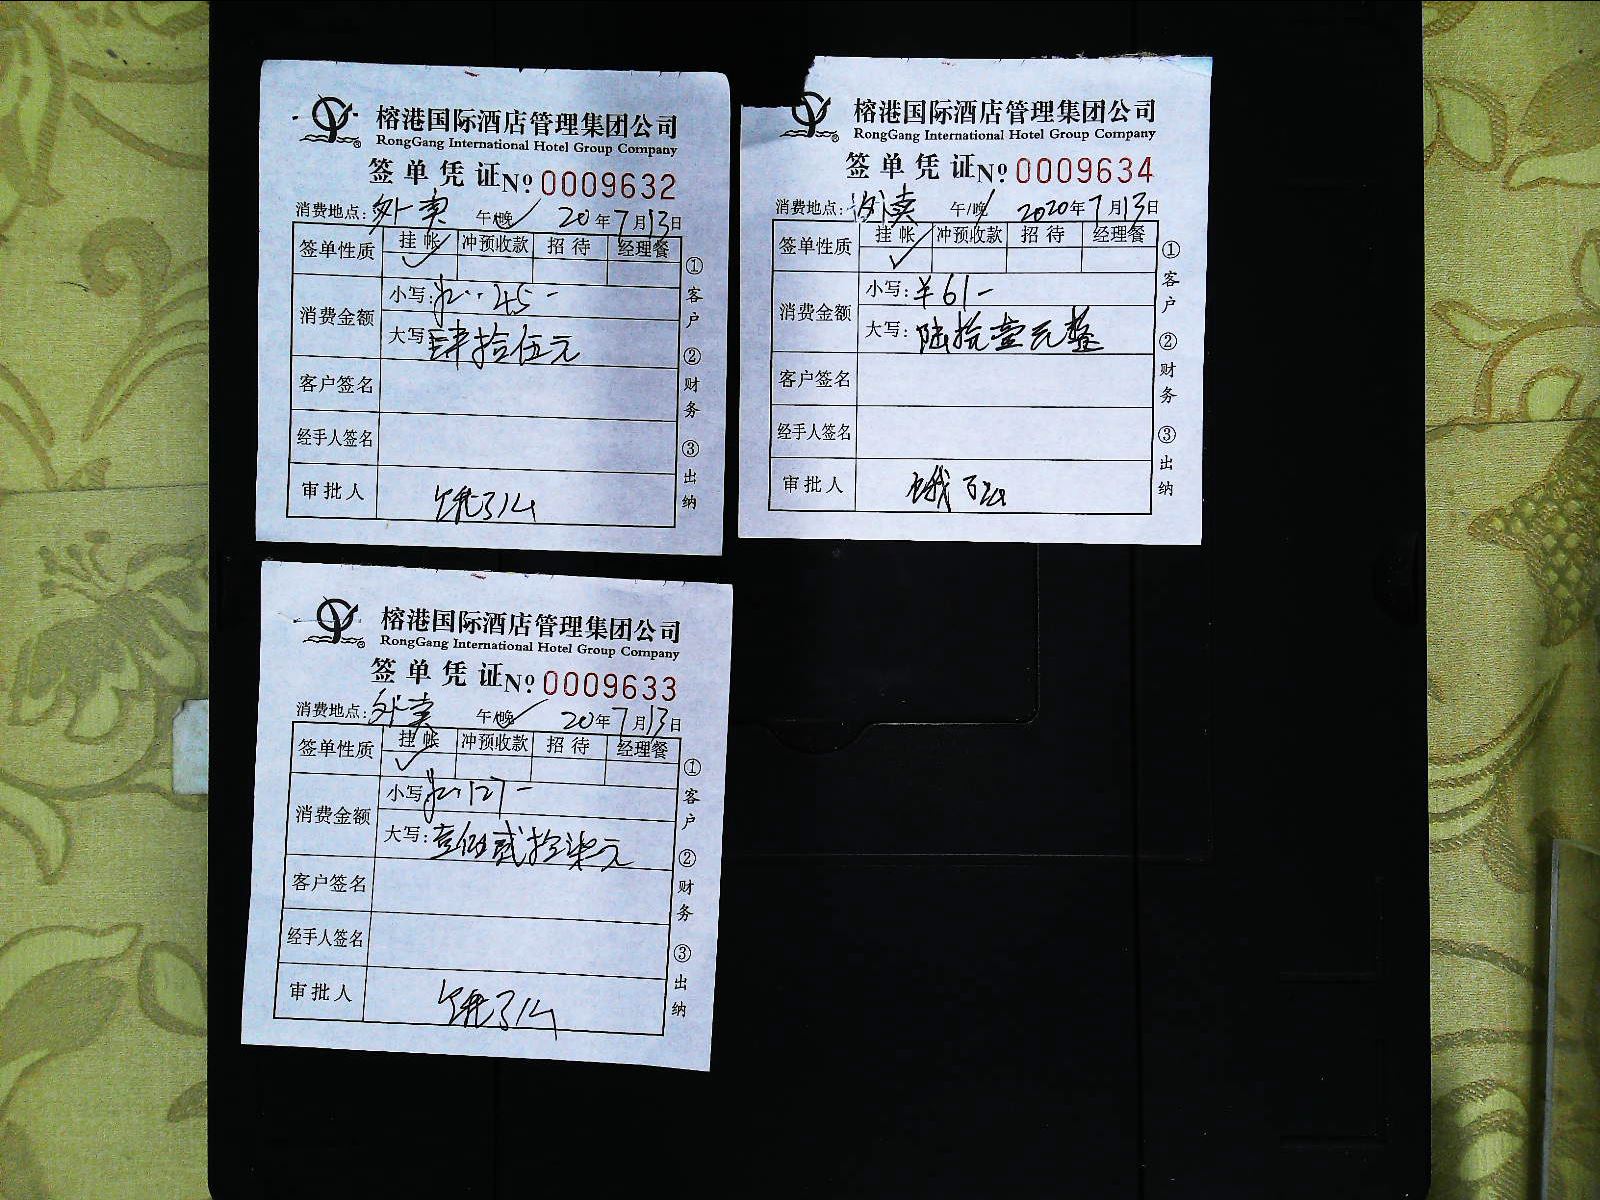 榕港国际酒店管理集团公司
RongGang International Hotel Group Company
签单凭证 Nº 0009632
消费地点: 外卖 午/晚 20年7月13日
签单性质 挂帐 冲预收款 招待 经理餐
消费金额
小写: 45-
大写: 肆拾伍元
客户签名
经手人签名
审批人 饿了么
①客户 ②财务 ③出纳
榕港国际酒店管理集团公司
RongGang International Hotel Group Company
签单凭证 Nº 0009634
消费地点: 外卖 午/晚 2020年7月13日
签单性质 挂帐 冲预收款 招待 经理餐
消费金额
小写: ¥61-
大写: 陆拾壹元整
客户签名
经手人签名
审批人 饿
①客户 ②财务 ③出纳
榕港国际酒店管理集团公司
RongGang International Hotel Group Company
签单凭证 Nº 0009633
消费地点: 外卖 午/晚 20年7月13日
签单性质 挂帐 冲预收款 招待 经理餐
消费金额
小写: 127-
大写: 壹佰贰拾柒元
客户签名
经手人签名
审批人 饿了么
①客户 ②财务 ③出纳